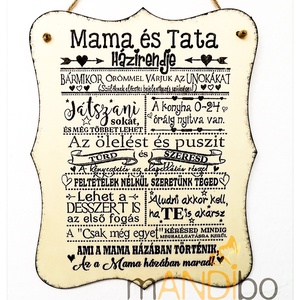 Mama és Tata
Házirendje
BÁRMIKOR ÖRÖMMEL VÁRJUK AZ UNOKÁKAT
Játszani sokat,
ÉS MÉG TÖBBET LEHET!
A konyha 0-24 óráig nyitva van.
Az ölelést és puszit
TÛRD és SZERESD
FELTÉTELEK NÉLKÜL SZERETÜNK TÉGED
Lehet a
DESSZERT IS
az első fogás
Aludni akkor kell,
ha TE is akarsz
A "Csak még egyet"
KÉRÉSED MINDIG
MEGHALLGATÁSRA KERÜL
AMI A MAMA HÁZÁBAN TÖRTÉNIK,
Az a Mama házában marad!
MANDIbo